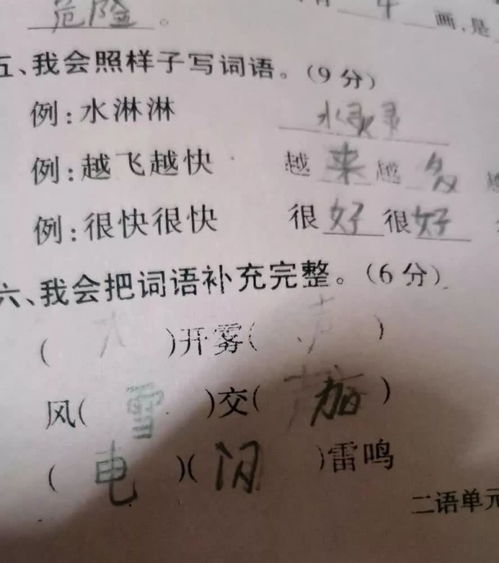 危险。 4 画,是
五、我会照样子写词语。(9分)
例:水淋淋 水灵灵
例:越飞越快 越来越多
例:很快很快 很好很好
六、我会把词语补充完整。(6分)
( )开雾( )
风(雪)交(加)
(电)(闪)雷鸣
二语单元